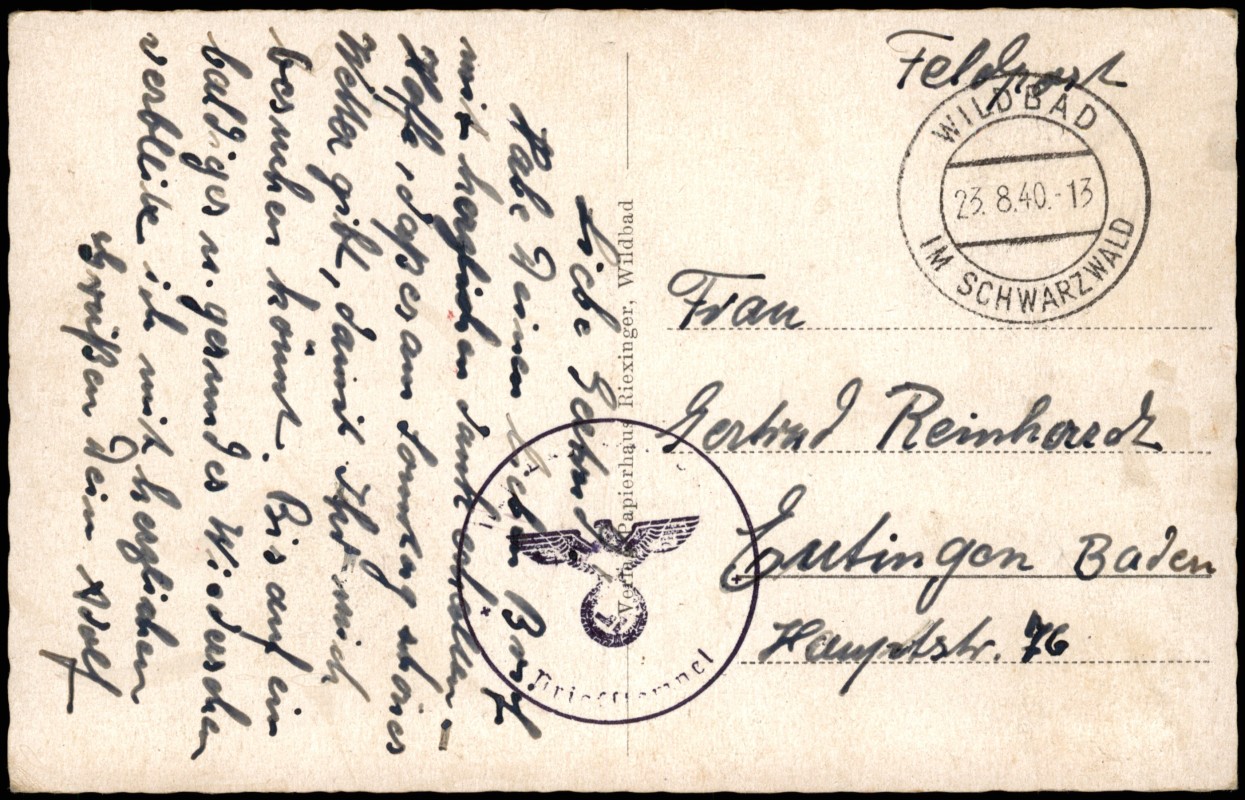 Feldpost
WILDBAD
23.8.40.-13
IM SCHWARZWALD
Frau
Gertrud Reinhardt
Eutingen Baden
Hauptstr. 76
Verlag Papierhaus Riexinger, Wildbad
Briefstempel
Liebe Gertrud
Habe Deinen lieben Brief
mit herzlichen Dank erhalten.
Hoffe, dass es am Sonntag schönes
Wetter gibt, damit Ihr mich
besuchen könnt. Bis auf ein
baldiges u. gesundes Wiedersehen
verbleibe ich mit herzlichen
Grüßen Dein Adolf